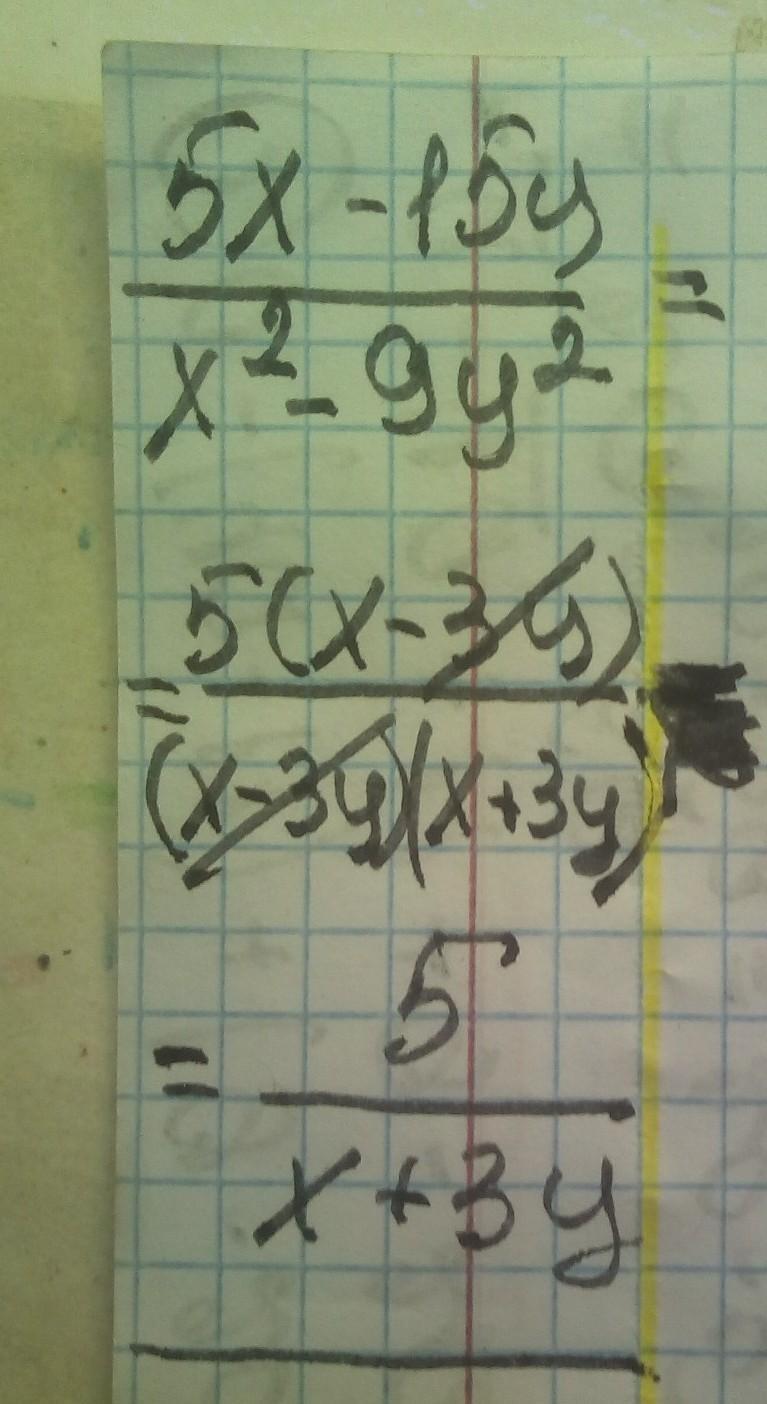 5x - 15y
x² - 9y² =
= 5(x - 3y)
(x - 3y)(x + 3y)
= 5
x + 3y